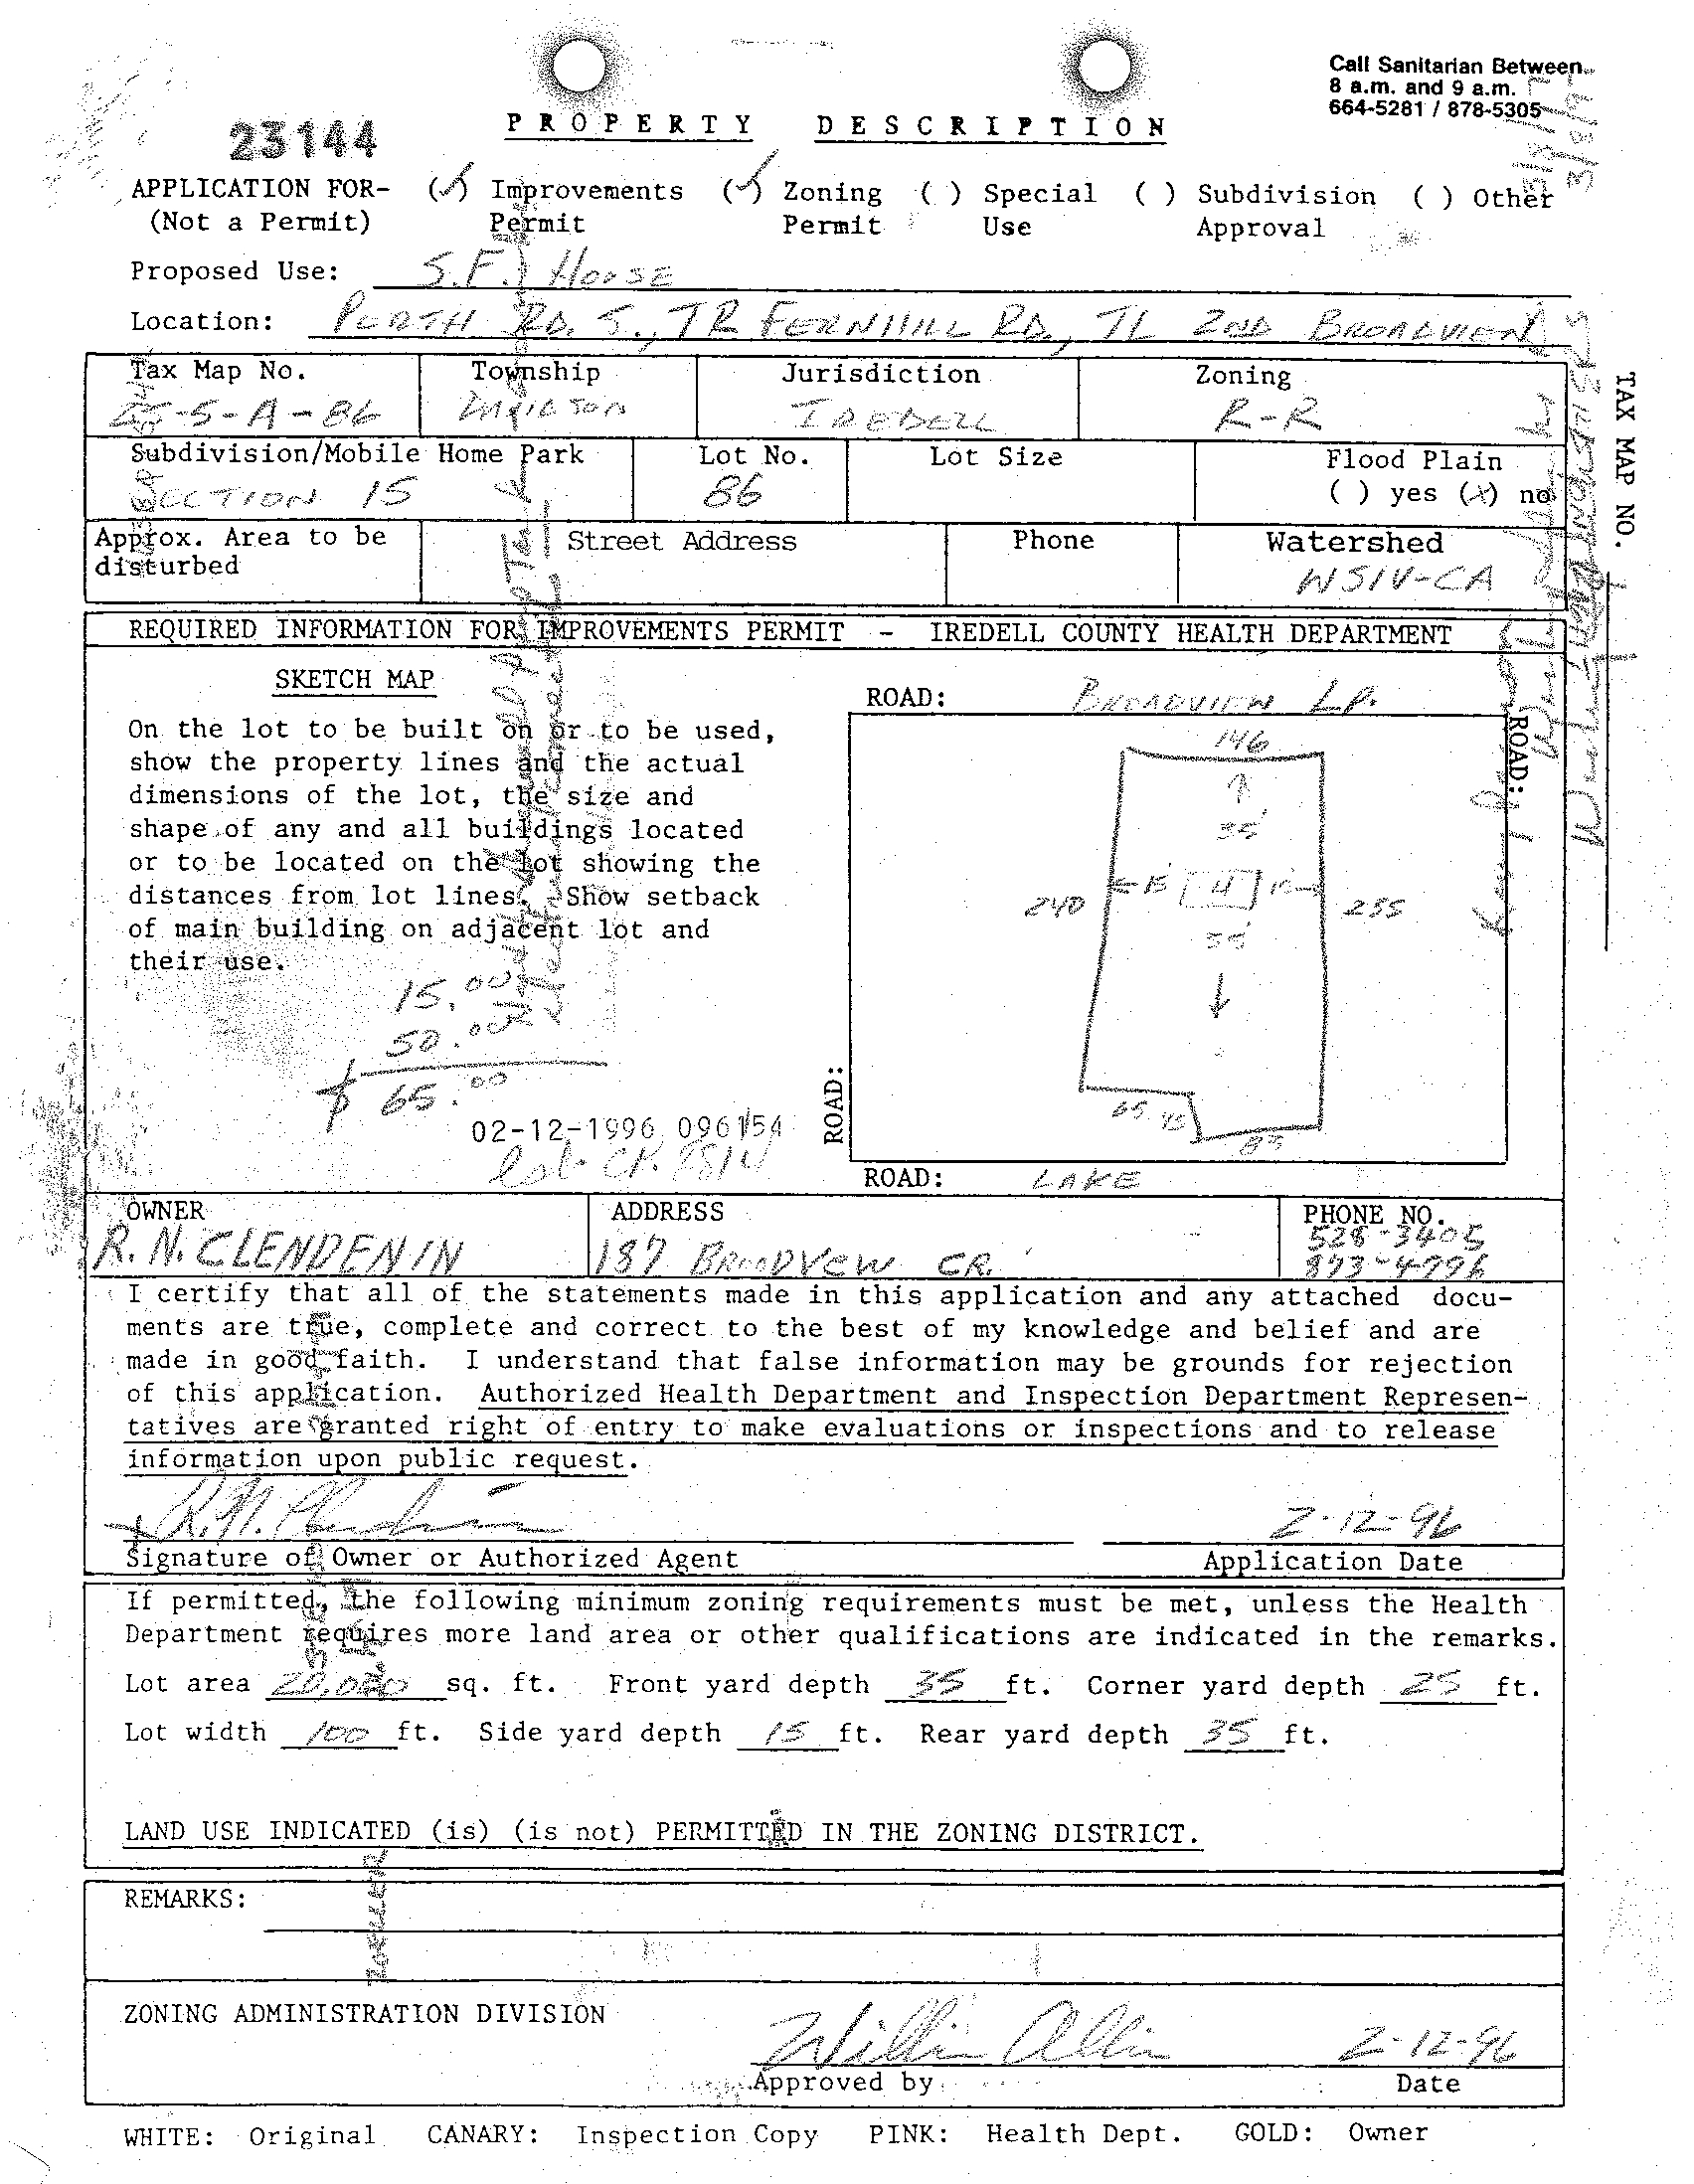 Call Sanitarian Between
8 a.m. and 9 a.m.
664-5281 / 878-5305
PROPERTY DESCRIPTION
23144
APPLICATION FOR- (✓) Improvements (✓) Zoning ( ) Special ( ) Subdivision ( ) Other
(Not a Permit) Permit Permit Use Approval
Proposed Use: S.F. House
Location: PERTH RD. S., TR FERNHILL RD., TL 2ND BROADVIEW
Tax Map No. Township Jurisdiction Zoning
-5-A-86 DAVIDSON IREDELL R-R
Subdivision/Mobile Home Park Lot No. Lot Size Flood Plain
SECTION 15 86 ( ) yes (X) no
TAX MAP NO.
Approx. Area to be Street Address Phone Watershed
disturbed WSIV-CA
REQUIRED INFORMATION FOR IMPROVEMENTS PERMIT - IREDELL COUNTY HEALTH DEPARTMENT
SKETCH MAP
On the lot to be built on or to be used,
show the property lines and the actual
dimensions of the lot, the size and
shape of any and all buildings located
or to be located on the lot showing the
distances from lot lines. Show setback
of main building on adjacent lot and
their use.
15.00
50.00
$ 65.00
02-12-1996 096154
ROAD: BROADVIEW LP.
ROAD:
146
35
15 H 15
240 255
35
65 45
85
ROAD:
ROAD: LAKE
OWNER ADDRESS PHONE NO.
R. N. CLENDENIN 187 BROADVIEW CR. 528-3405
873-4796
I certify that all of the statements made in this application and any attached docu-
ments are true, complete and correct to the best of my knowledge and belief and are
made in good faith. I understand that false information may be grounds for rejection
of this application. Authorized Health Department and Inspection Department Represen-
tatives are granted right of entry to make evaluations or inspections and to release
information upon public request.
R.N. Clendenin 2-12-96
Signature of Owner or Authorized Agent Application Date
If permitted, the following minimum zoning requirements must be met, unless the Health
Department requires more land area or other qualifications are indicated in the remarks.
Lot area 20,000 sq. ft. Front yard depth 35 ft. Corner yard depth 25 ft.
Lot width 100 ft. Side yard depth 15 ft. Rear yard depth 35 ft.
LAND USE INDICATED (is) (is not) PERMITTED IN THE ZONING DISTRICT.
REMARKS:
ZONING ADMINISTRATION DIVISION
Willi Alli 2-12-96
Approved by Date
WHITE: Original CANARY: Inspection Copy PINK: Health Dept. GOLD: Owner